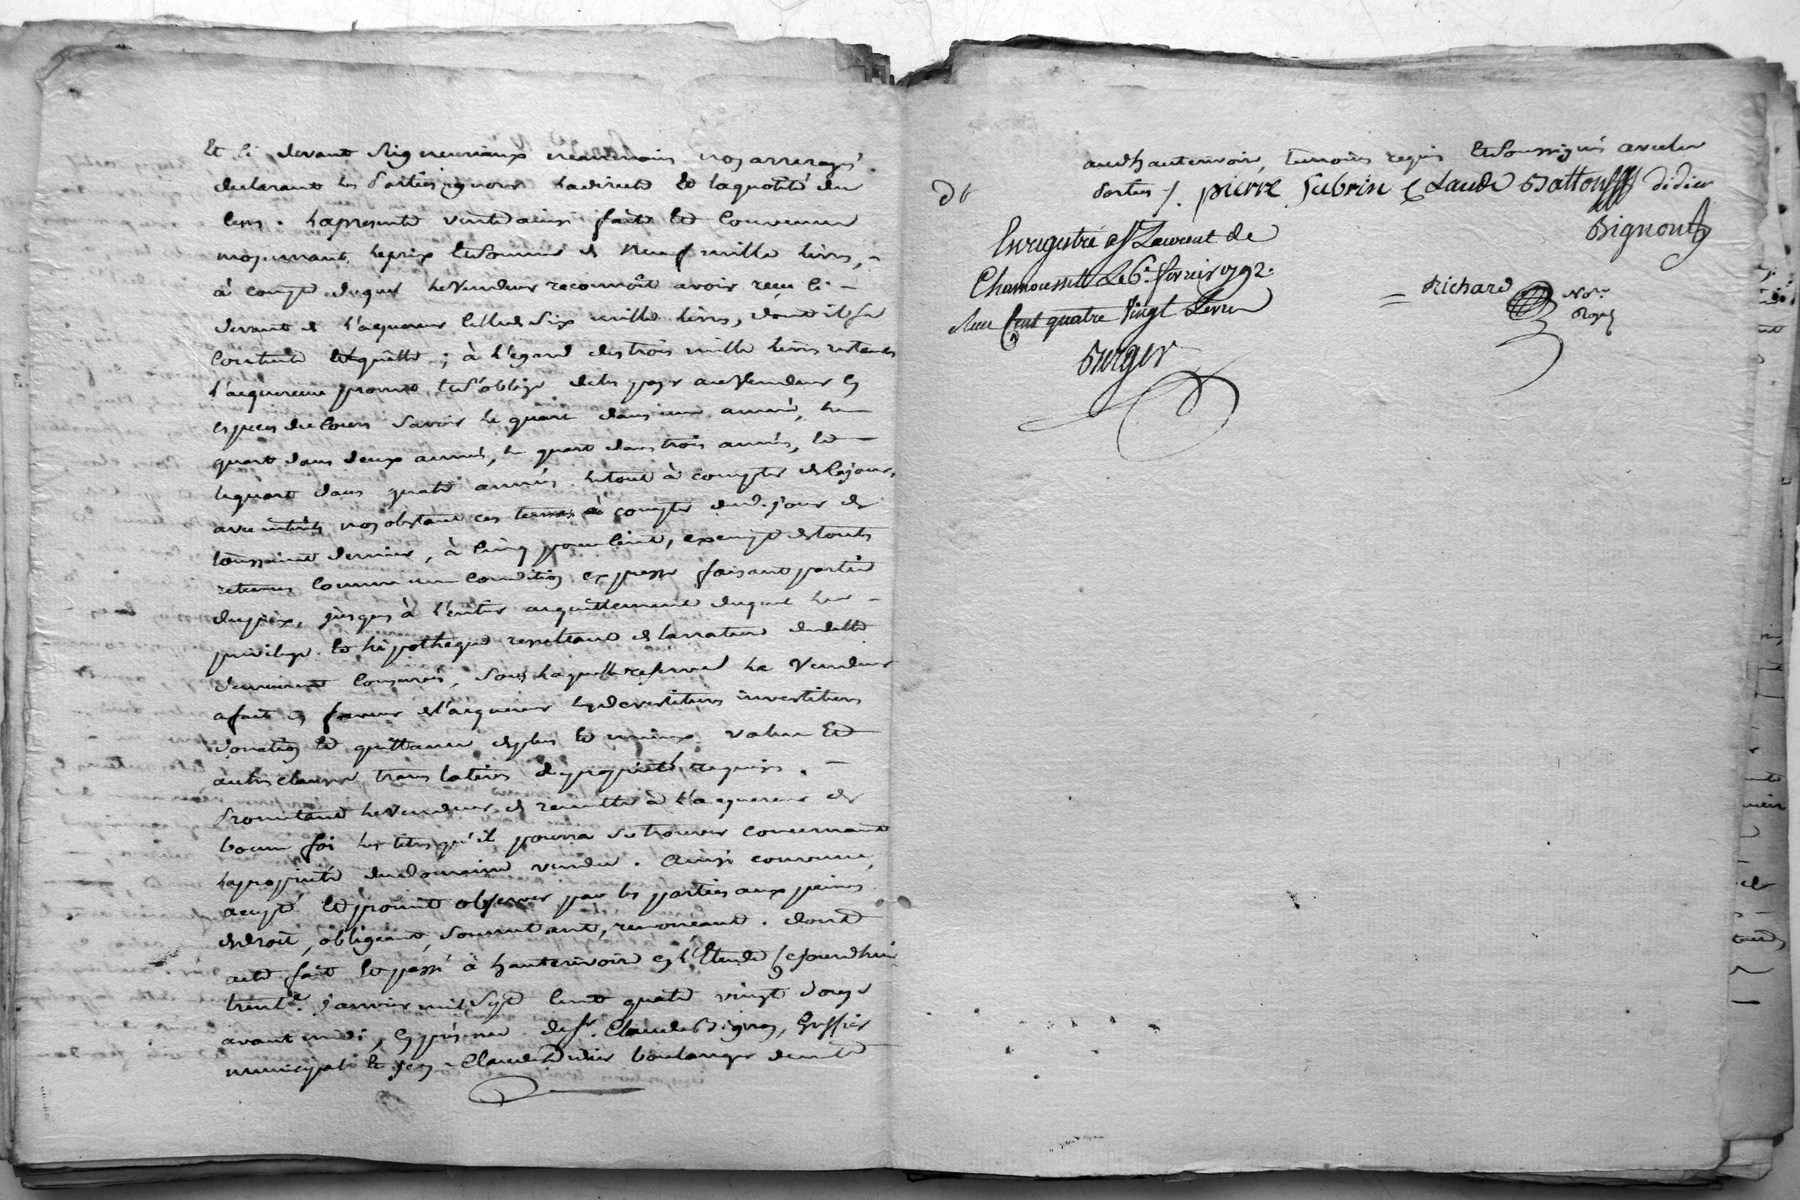 Et ci devant seigneuriaux neanmoins nos arreragés
declarant les parties ignorer la directe et la quotité du
cens. La presente vente ainsi faite et convenue
moyennant le prix et somme de neuf mille livres,
à compte duquel le vendeur reconnoît avoir reçu ci-
devant de l'aquereur celle de six mille livres, dont il se
contente et quitte ; à l'égard des trois mille livres restantes
l'acquereur promet et s'oblige de les payer au vendeur en
especes de cours savoir le quart dans une année, le
quart dans deux années, le quart dans trois années, et
le quart dans quatre années. le tout à compter de ce jour,
avec intérêts nos obstant ces termes à compter dud. jour de
toussaint dernier, à cinq pour cent, exempt de toutes
retenues comme une condition expresse faisant partie
du prix, jusques à l'entier acquittement duquel les
privilege et hipotheque resultant de la nature de la dette
demeurent conservés, sous laquelle reserve le vendeur
a fait en faveur de l'aquereur les devestitures investitures
donation et quittance de plus et mieux value et
autres clauses translatives de proprieté requises.
Promettant le vendeur de remettre à l'aquereur de
bonne foi les titres qu'il pourra se trouver concernant
la proprieté du domaine vendu. Ainsi convenu,
accepté et promit observer par les parties aux peines
de droit, obligeant, soumettant, renonçant. dont
acte fait et passé à hauterivoire en l'Etude cejourdhui
trente janvier mil sept cent quatre vingt douze
avant midi, en présence de sr. Claude Bignon, Greffier
municipal et de sr Claude Didier boulanger demt
aud hauterivoire, temoins requis et soussignés avec les
parties /. pierre subrin Claude Battou didier
Bignon
Enregistré à St Laurent de
Chamousset le 6e fevrier 1792.
Reçu cent quatre vingt livres
Burger
Richard Nore
Royal